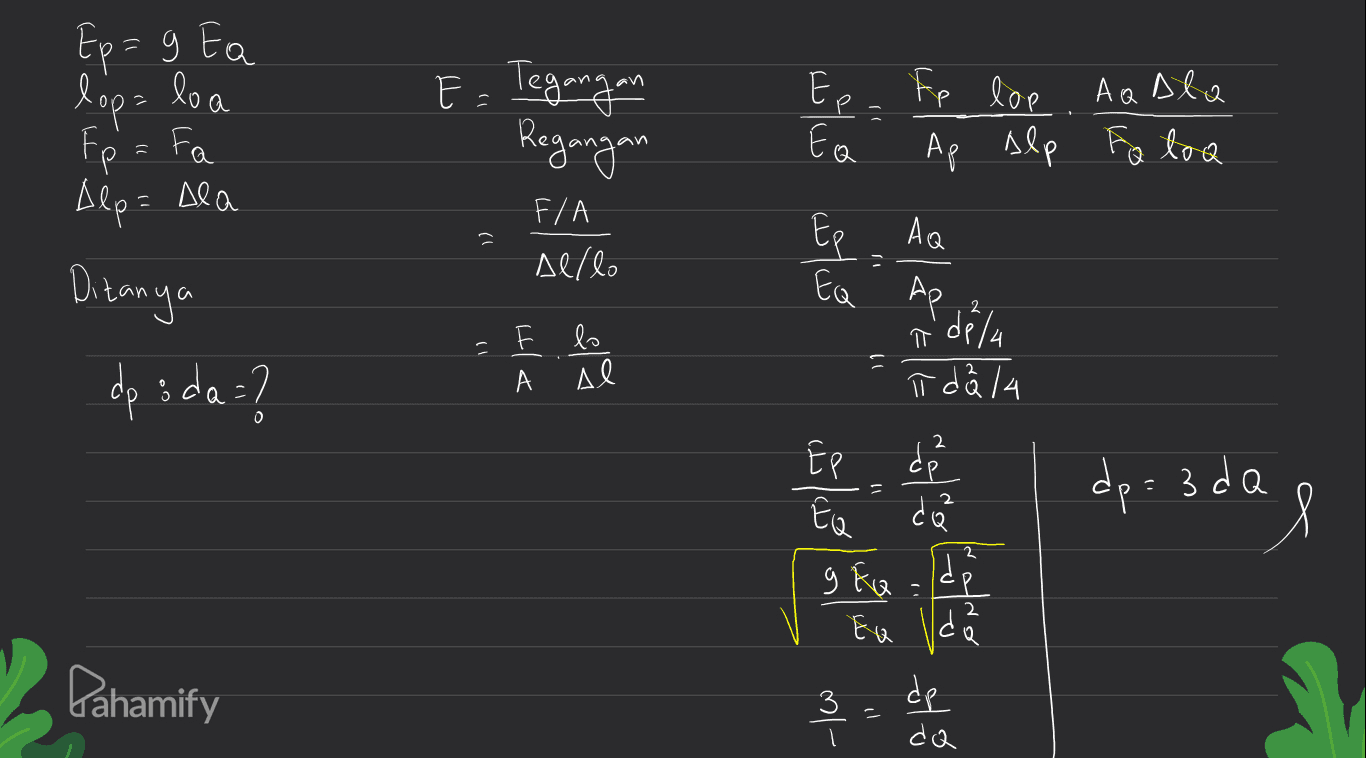 Ep = 9 EQ
lop = loQ
Fp = FQ
Δlp = ΔlQ
Ditanya
dp : dQ = ?
E = Tegangan / Regangan
= F/A / Δl/lo
= F/A . lo/Δl
Ep/EQ = Fp lop / Ap Δlp . AQ ΔlQ / FQ loQ
Ep/EQ = AQ/Ap
= π dp²/4 / π dQ²/4
Ep/EQ = dp²/dQ²
√(9 EQ/EQ) = √(dp²/dQ²)
3/1 = dp/dQ
dp = 3 dQ
Pahamify